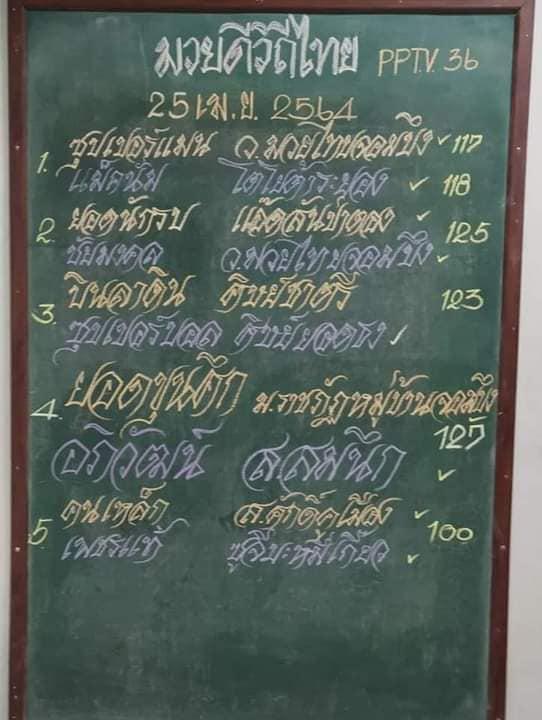 มวยดีวิถีไทย PPTV. 36
25 เม.ย. 2564
1. ซุปเปอร์แมน ว.มวยไทยจอมบึง ✓ 117
แม็คนั่ม โตโยต้าระยอง ✓ 118
2. ยอดนักรบ แอ๊ดสันป่าตอง ✓ 125
ชัยมงคล ว.มวยไทยจอมบึง ✓
3. บินลาดิน ศิษย์ชาตรี 123
ซุปเปอร์บอล ศิษย์ยอดธง ✓
4. ยอดขุนศึก ม.ราชภัฏหมู่บ้านจอมบึง
อภิวัฒน์ ส.สมนึก 127 ✓
5. คนเหล็ก ส.ศักดิ์คูเมือง ✓ 100
เพชรแท้ ชูจีบะหมี่เกี๊ยว ✓